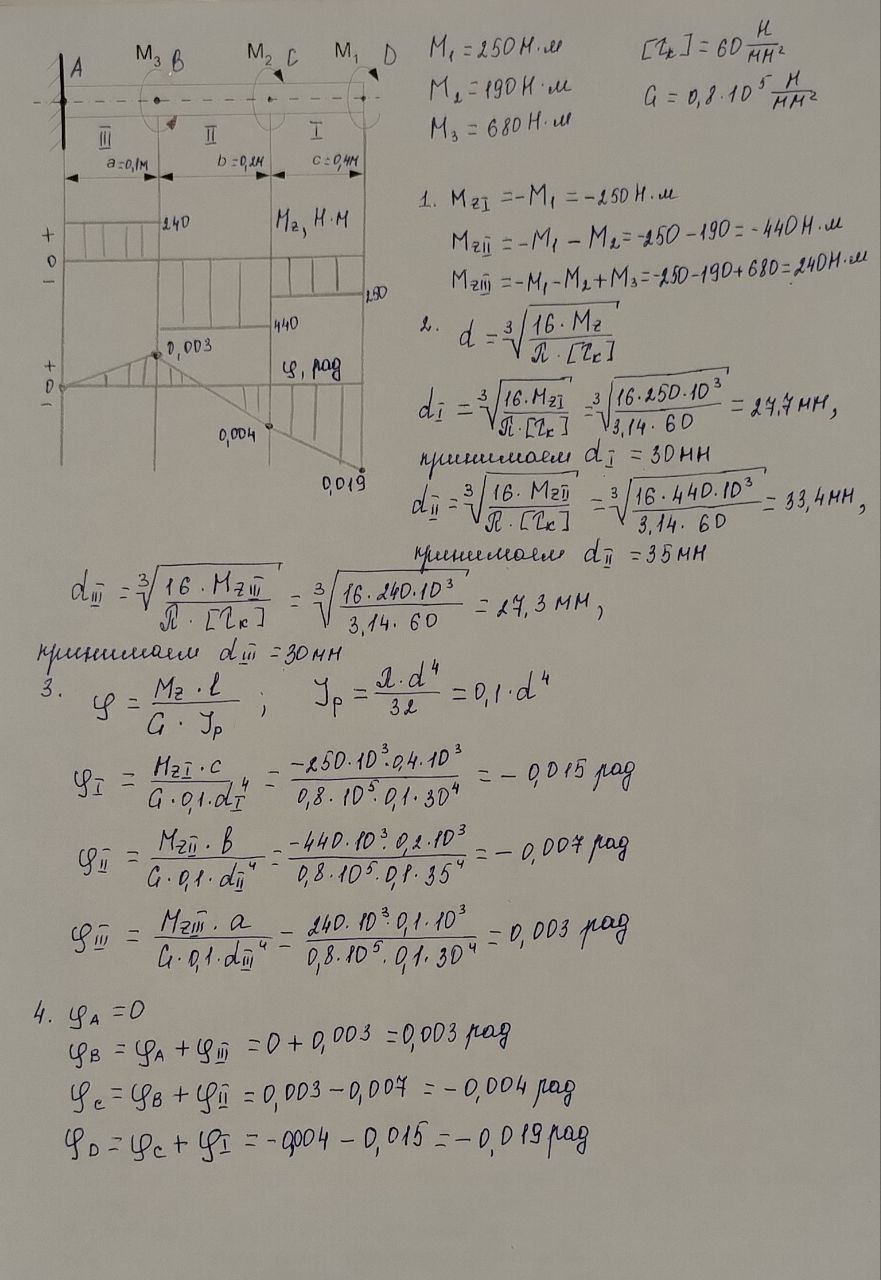 A M₃ B M₂ C M₁ D
III II I
a=0,1м b=0,2м c=0,4м
M₁ = 250 Н·м
M₂ = 190 Н·м
M₃ = 680 Н·м
[τₖ] = 60 Н/мм²
G = 0,8·10⁵ Н/мм²
+ 0 −
240
Mz, Н·м
250
440
+ 0 −
0,003
φ, рад
0,004
0,019
1. MzI = −M₁ = −250 Н·м
MzII = −M₁ − M₂ = −250 − 190 = −440 Н·м
MzIII = −M₁ − M₂ + M₃ = −250 − 190 + 680 = 240 Н·м
2. d = ∛(16·Mz / π·[τₖ])
dI = ∛(16·MzI / π·[τₖ]) = ∛(16·250·10³ / 3,14·60) = 27,7 мм,
принимаем dI = 30 мм
dII = ∛(16·MzII / π·[τₖ]) = ∛(16·440·10³ / 3,14·60) = 33,4 мм,
принимаем dII = 35 мм
dIII = ∛(16·MzIII / π·[τₖ]) = ∛(16·240·10³ / 3,14·60) = 27,3 мм,
принимаем dIII = 30 мм
3. φ = Mz·l / G·Jp ; Jp = π·d⁴ / 32 = 0,1·d⁴
φI = MzI·c / G·0,1·dI⁴ = −250·10³·0,4·10³ / 0,8·10⁵·0,1·30⁴ = −0,015 рад
φII = MzII·b / G·0,1·dII⁴ = −440·10³·0,2·10³ / 0,8·10⁵·0,1·35⁴ = −0,007 рад
φIII = MzIII·a / G·0,1·dIII⁴ = 240·10³·0,1·10³ / 0,8·10⁵·0,1·30⁴ = 0,003 рад
4. φA = 0
φB = φA + φIII = 0 + 0,003 = 0,003 рад
φC = φB + φII = 0,003 − 0,007 = −0,004 рад
φD = φC + φI = −0,004 − 0,015 = −0,019 рад